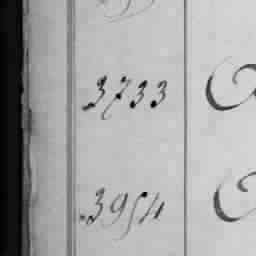 3733
3954